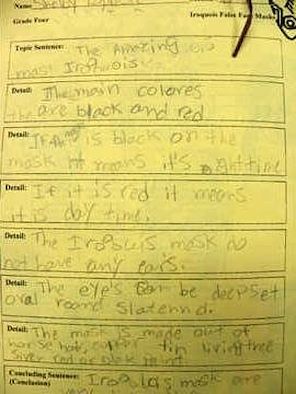 Name
Grade Four Iroquois False Face Masks
Topic Sentence: The Amazing
mask Iroquois
Detail: The main colores
the are black and red
Detail: If is black on the
mask it means it's
Detail: If it is red it means
it is day time.
Detail: The Iroquis mask do
not have any ears.
Detail: The eye's can be deepset
oval roond
Detail: The mask is made out of
horse hair, copper tin living tree
red or black paint
Concluding Sentence:
(Conclusion) mask are